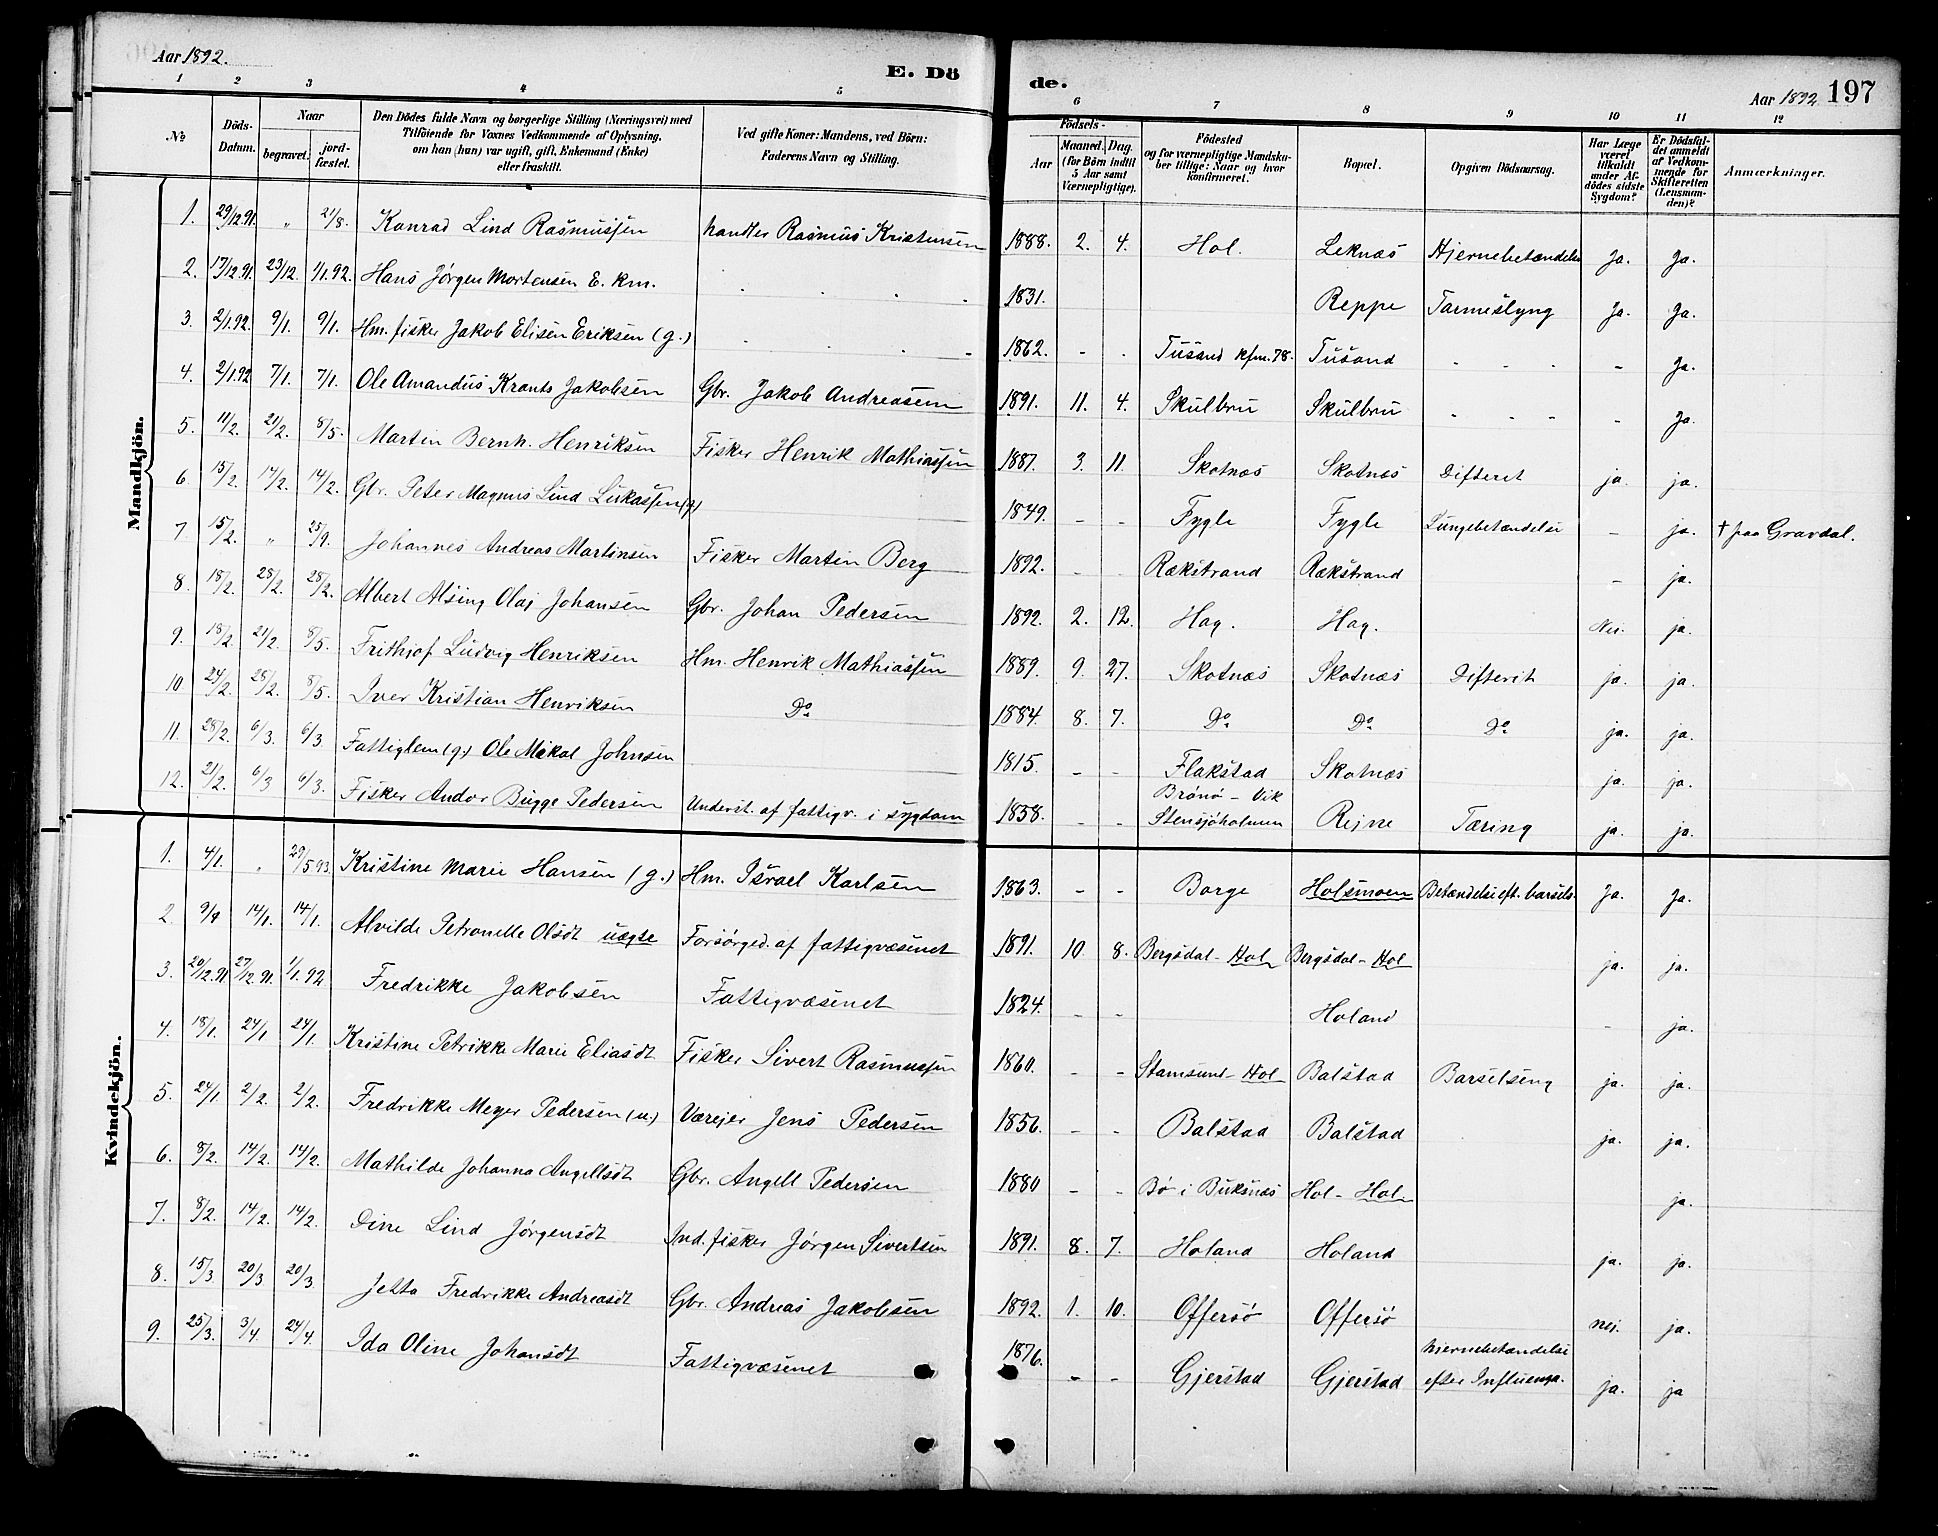 Aar 1892. E. Dö de. Aar 1892 197
1 2 3 4 5 6 7 8 9 10 11 12
№ Döds-Datum. Naar begravet. jord-fæstet. Den Dödes fulde Navn og borgerlige Stilling (Næringsvei) med Tilföiende for Voxnes Vedkommende af Oplysning, om han (hun) var ugift, gift, Enkemand (Enke) eller fraskilt. Ved gifte Koner: Mandens, ved Börn: Faderens Navn og Stilling. Födsels- Aar Maaned. Dag. (for Börn indtil 5 Aar samt Værnepligtige). Födested og for værnepligtige Mandska-ber tillige: Naar og hvor konfirmeret. Bopæl. Opgiven Dödsaarsag. Har Læge været tilkaldt under Af-dödes sidste Sygdom? Er Dödsfal-det anmeldt af Vedkom-mende for Skifteretten (Lensman-den)? Anmærkninger.
Mandkjön.
1. 29/12.91. " 21/8. Konrad Lind Rasmussen handler Rasmus Kristensen 1888. 2. 4. Hol. Leknæs Hjernebetændelse Ja. Ja.
2. 17/12.91. 23/12. 1/1.92. Hans Jørgen Mortensen E. km. 1831. Reppe Tarmeslyng Ja. Ja.
3. 2/1.92. 9/1. 9/1. Hm. fisker Jakob Elisen Eriksen (g.) 1862. - - Tusand kfm. 78. Tusand - - - - Ja.
4. 2/1.92 7/1. 7/1. Ole Amandus Krants Jakobsen Gbr. Jakob Andreasem 1891. 11. 4. Skulbru Skulbru - - - - Ja.
5. 11/2. 21/2. 8/5. Martin Bernh. Henriksen Fisker Henrik Mathiassen 1887. 3. 11. Skotnæs Skotnæs Difterit ja. ja.
6 15/2. 14/2. 14/2. Gbr. Peter Magnus Lind Lukassen (g) 1849. - - Fygle Fygle Lungebetændelse - ja. † paa Gravdal.
7 15/2. " 25/9. Johannes Andreas Martinsen Fisker Martin Berg 1892. - - Rækstrand Rækstrand - ja.
8. 18/2. 28/2. 28/2. Albert Alsing Olaj Johansen Gbr. Johan Pedersen 1892. 2. 12. Hag. Hag. Nei. ja.
9. 18/2. 21/2. 8/5. Frithjof Ludvig Henriksen Hm. Henrik Mathiassen 1889. 9. 27. Skotnæs Skotnæs Difterit ja. ja.
10 24/2. 28/2. 8/5. Iver Kristian Henriksen Do 1884. 8. 7. Do Do Do ja. ja.
11. 28/2. 6/3. 6/3. Fattiglem (g.) Ole Mikal Johnsen 1815. - - Flakstad Skotnæs ja. ja.
12. 21/2. 6/3 6/3. Fisker Andor Bugge Pedersen Underst. af fattigv. i sygdom 1858. - - Brønø - Vik Stensjøholmen Rejne Tæring ja. ja.
Kvindekjön.
1. 4/1. " 29/5 93. Kristine Marie Hansen (g.) Hm. Israel Karlsen 1863. - - Borge Holsmoen Betændelse eft. barsels. Ja. Ja.
2. 9/9 14/1. 14/1. Alvilde Petronelle Olsdt uægte Forsørged. af fattigvæsenet 1891. 10 8. Bergsdal - Hol Bergsdal - Hol ja. ja.
3. 20/12.91 27/12.91. 1/1.92. Fredrikke Jakobsen Fattigvæsenet 1824. - - Holand - ja.
4. 18/1. 24/1 24/1 Kristine Petrikke Marie Eliasdt Fisker Sivert Rasmussen 1860. - - Stamsund - Hol Balstad Barselseng ja. ja.
5. 24/1 2/2. 2/2. Fredrikke Meyer Pedersen (u.) Værejer Jens Pedersen 1856. - - Balstad Balstad ja. ja.
6. 8/2. 14/2. 14/2. Mathilde Johanna Angellsdt Gbr. Angell Pedersen 1880 - - Bø i Buksnæs Hol - Hol ja.
7. 8/2. 14/2. 14/2. Dine Lind Jørgensdt Ind. fisker Jørgen Sivertsen 1891. 8. 7. Holand Holand ja. ja.
8. 15/3. 20/3 20/3. Jetta Fredrikke Andreasdt Gbr. Andreas Jakobsen 1892. 1. 10. Offersø Offersø nej. ja.
9. 25/3. 3/4. 24/4. Ida Oline Johansdt Fattigvæsenet 1876. - - Gjerstad Gjerstad hjernebetændelse efter Influenza. ja. ja